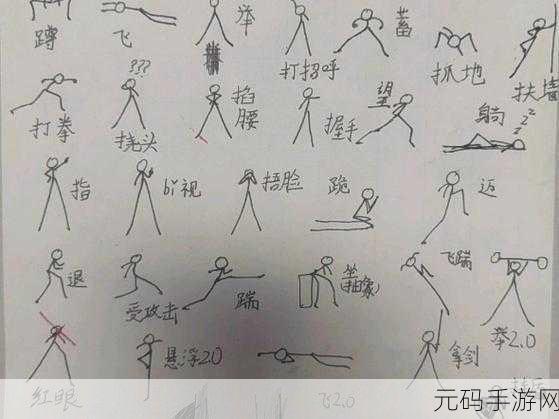 蹲 飞 举 打招呼 蓄 抓地 扶墙
打拳 ??? 挠头 掐腰 握手 望 躺 zzz
指 bi视 捂脸 跪 迈
退 受攻击 踹 坐(抽象) 飞踹 举2.0
红眼 悬浮2.0 飞2.0 拿剑
元码手游网